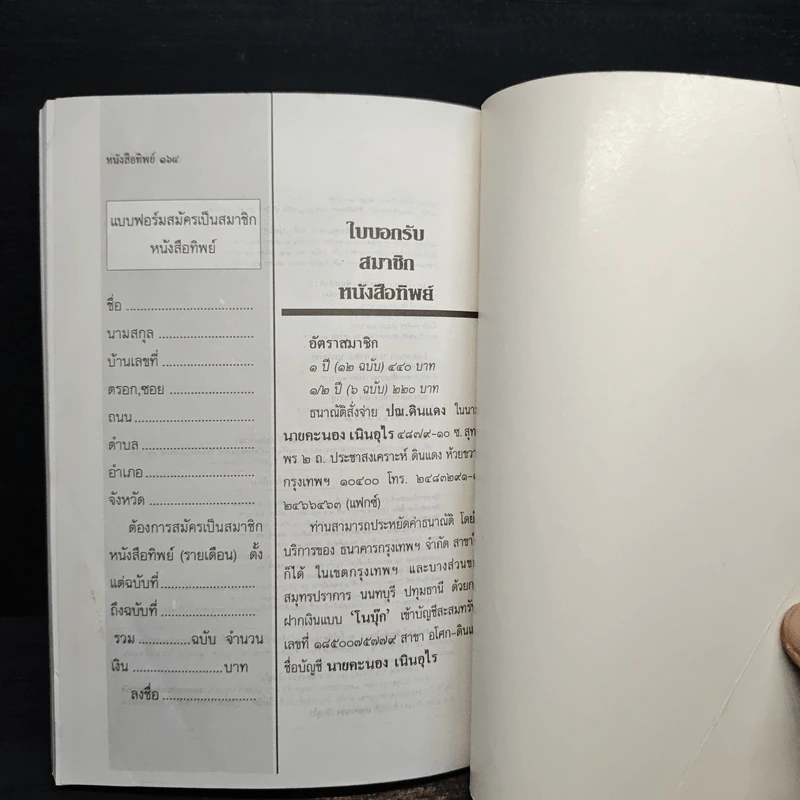 หนังสือทิพย์ ๑๖๔
แบบฟอร์มสมัครเป็นสมาชิก
หนังสือทิพย์
ชื่อ ..................................
นามสกุล ..........................
บ้านเลขที่ .........................
ตรอก,ซอย .......................
ถนน.................................
ตำบล ...............................
อำเภอ..............................
จังหวัด .............................
ต้องการสมัครเป็นสมาชิก
หนังสือทิพย์ (รายเดือน) ตั้ง
แต่ฉบับที่..........................
ถึงฉบับที่..........................
รวม ..............ฉบับ จำนวน
เงิน .........................บาท
ลงชื่อ ..........................
ใบบอกรับ
สมาชิก
หนังสือทิพย์
อัตราสมาชิก
๑ ปี (๑๒ ฉบับ) ๔๔๐ บาท
๑/๒ ปี (๖ ฉบับ) ๒๒๐ บาท
ธนาณัติสั่งจ่าย ปณ.ดินแดง ในนา
นายคะนอง เนินอุไร ๔๘๗/๙-๑๐ ซ. สุท
พร ๒ ถ. ประชาสงเคราะห์ ดินแดง ห้วยขวา
กรุงเทพฯ ๑๐๔๐๐ โทร. ๒๔๘๓๒๙๑-
๒๔๖๖๔๖๓ (แฟกซ์)
ท่านสามารถประหยัดค่าธนาณัติ โดย
บริการของ ธนาคารกรุงเทพฯ จำกัด สาขา
ก็ได้ ในเขตกรุงเทพฯ และบางส่วนข
สมุทรปราการ นนทบุรี ปทุมธานี ด้วย
ฝากเงินแบบ 'โนบุ๊ก' เข้าบัญชีสะสมทรั
เลขที่ ๑๘๕๐๐๗๕๗๗๙ สาขา อโศก-ดินแ
ชื่อบัญชี นายคะนอง เนินอุไร